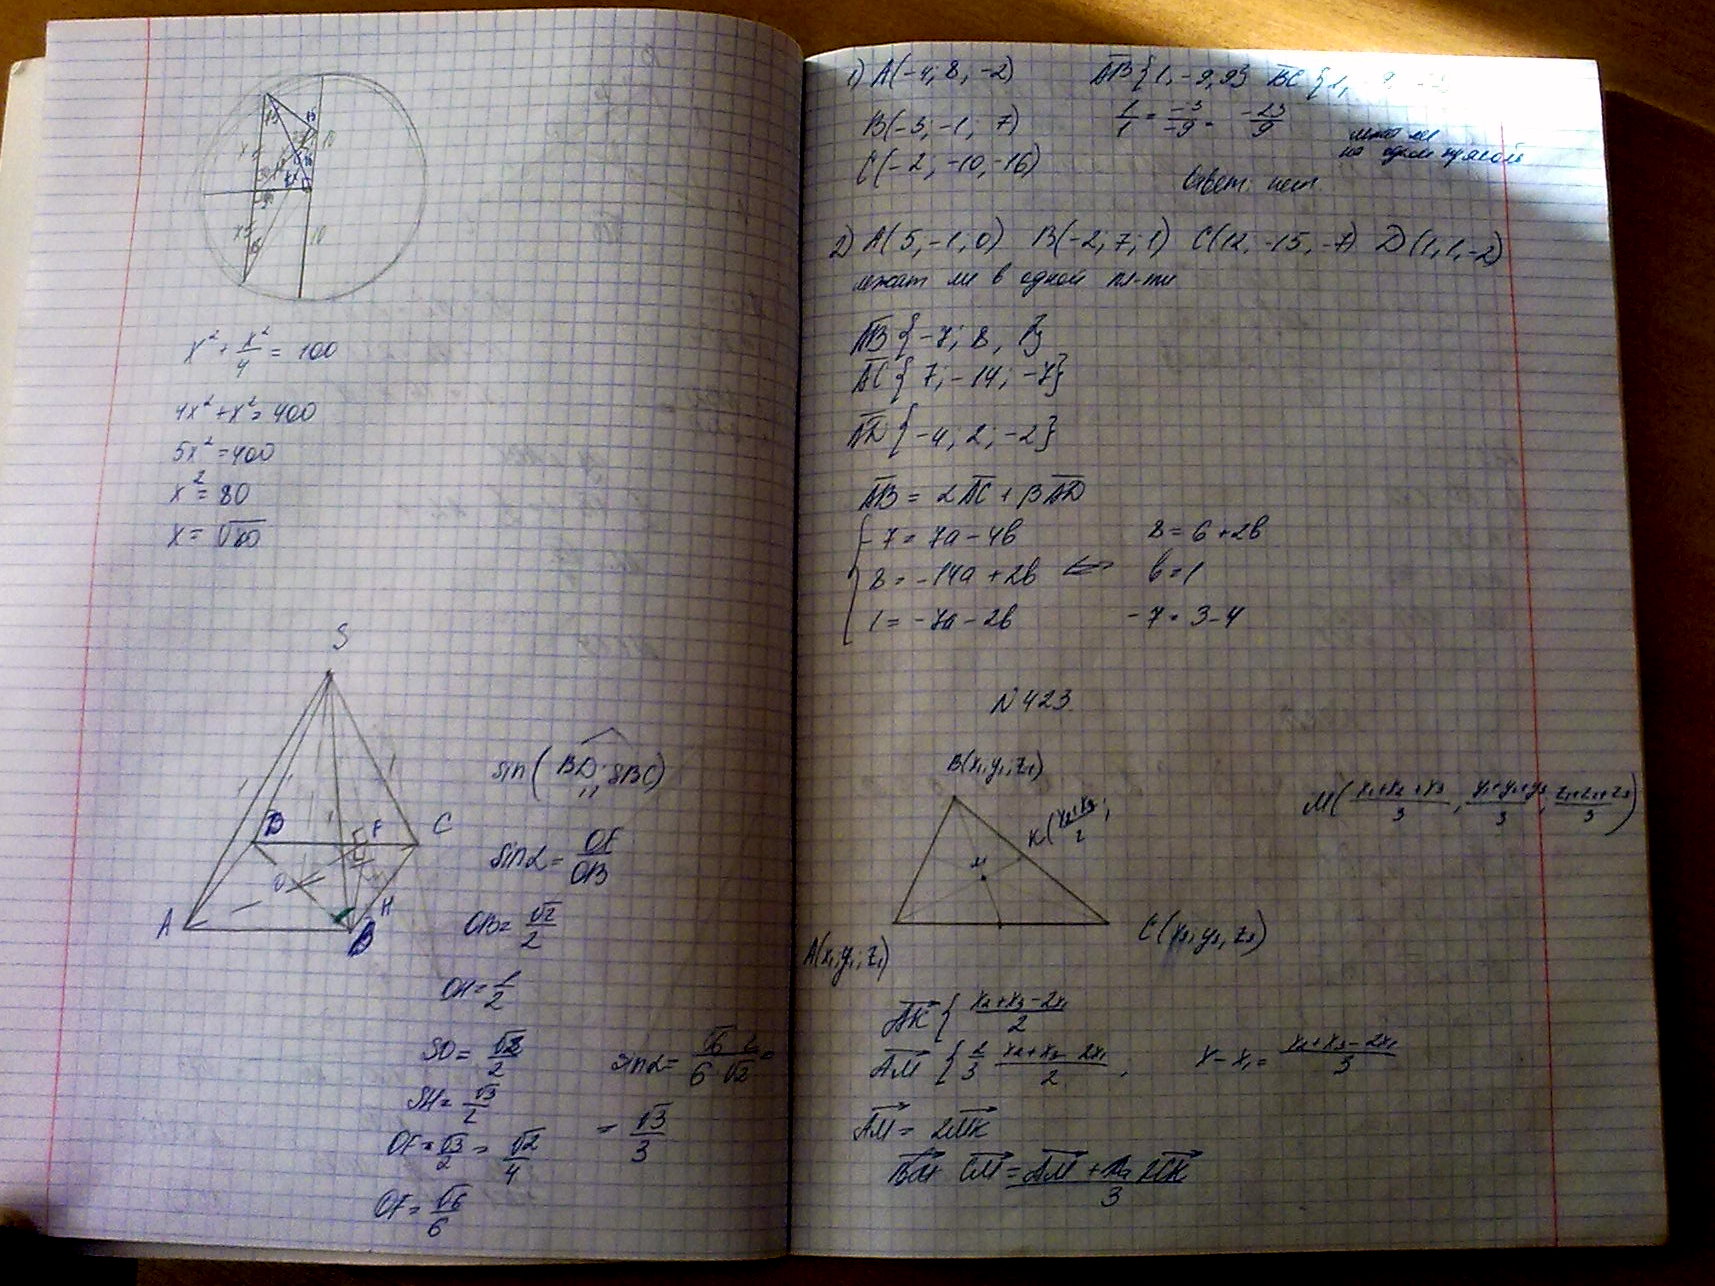 x² + x²/4 = 100
4x² + x² = 400
5x² = 400
x² = 80
x = √80
S
D F C
O
H
A B
sin(BD; SBC)
sinα = OF/OB
OB = √2/2
OH = 1/2
SO = √2/2
SH = √3/2
OF · √3/2 = √2/4
OF = √6/6
sinα = √6 · 2/6 · √2 =
= √3/3
1) A(-4; 8, -2) AB{1, -9, 9} BC{1,
B(-3; -1; 7) 1/1 = -9/-9 = -23/9
C(-2, -10, -16)
лежат ли
на одной прямой
Ответ: нет.
2) A(5, -1, 0) B(-2; 7; 1) C(12, -15, -7) D(1, 1, -2)
лежат ли в одной пл-ти
AB{-7; 8, 1}
AC{7; -14; -7}
AD{-4; 2; -2}
AB = αAC + βAD
-7 = 7a - 4b
8 = -14a + 2b
1 = -7a - 2b
8 = 6 + 2b
b = 1
-7 = 3 - 4
N 423
B(x₁, y₁, z₁)
K(x₂+x₃/2;
M(x₁+x₂+x₃/3, y₁+y₂+y₃/3, z₁+z₂+z₃/3)
M
C(x₃, y₃, z₃)
A(x₁, y₁, z₁)
AK{x₂+x₃-2x₁/2
AM{2/3 x₂+x₃-2x₁/2, x - x₁ = x₂+x₃-2x₁/3
AM = 2MK